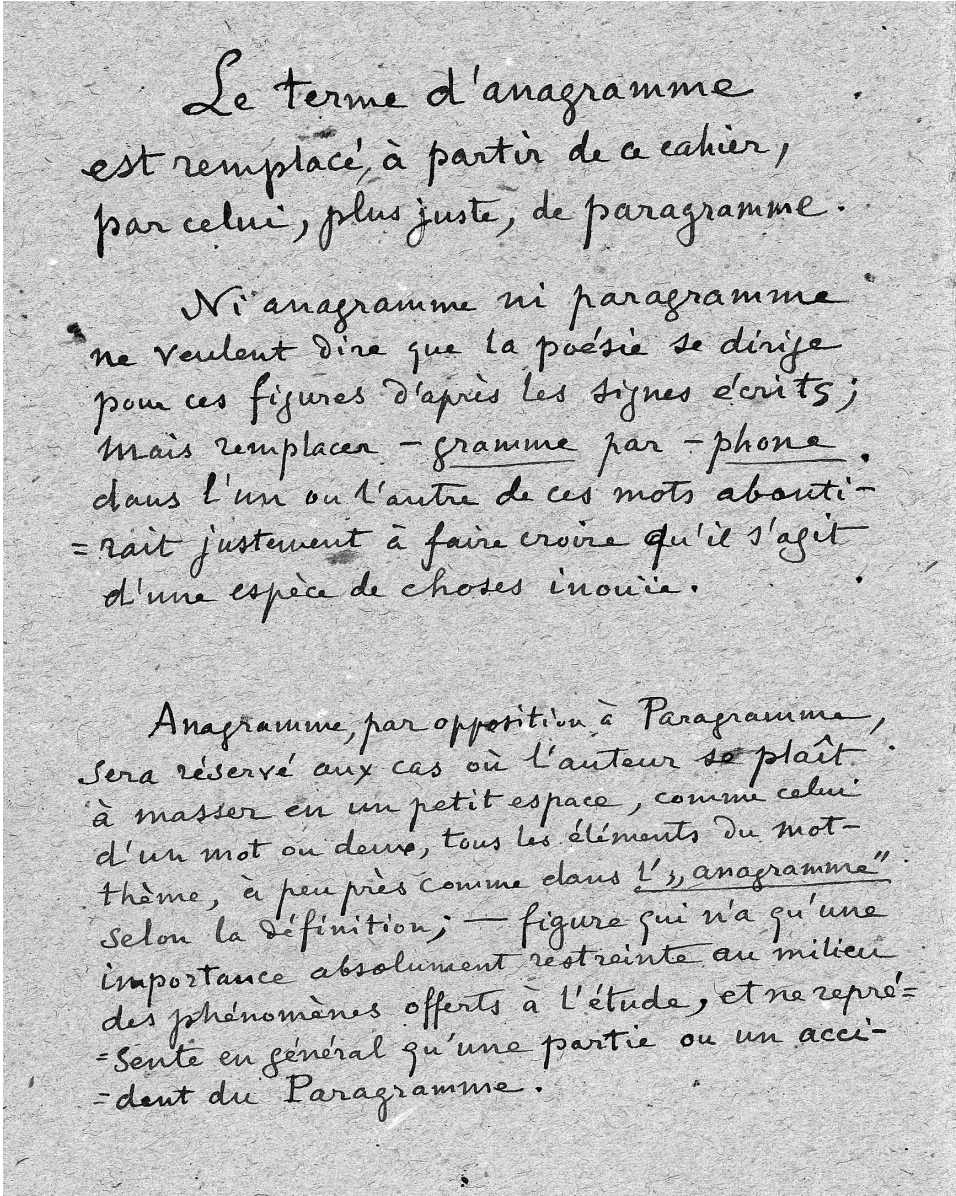 Le terme d'anagramme
est remplacé, à partir de ce cahier,
par celui, plus juste, de paragramme.
Ni anagramme ni paragramme
ne veulent dire que la poésie se dirige
pour ces figures d'après les signes écrits;
mais remplacer -gramme par -phone
dans l'un ou l'autre de ces mots abouti-
=rait justement à faire croire qu'il s'agit
d'une espèce de choses inouïe.
Anagramme, par opposition à Paragramme,
sera réservé aux cas où l'auteur se plaît
à masser en un petit espace, comme celui
d'un mot ou deux, tous les éléments du mot-
thème, à peu près comme dans l'„anagramme"
selon la définition; — figure qui n'a qu'une
importance absolument restreinte au milieu
des phénomènes offerts à l'étude, et ne repré=
=sente en général qu'une partie ou un acci-
=dent du Paragramme.